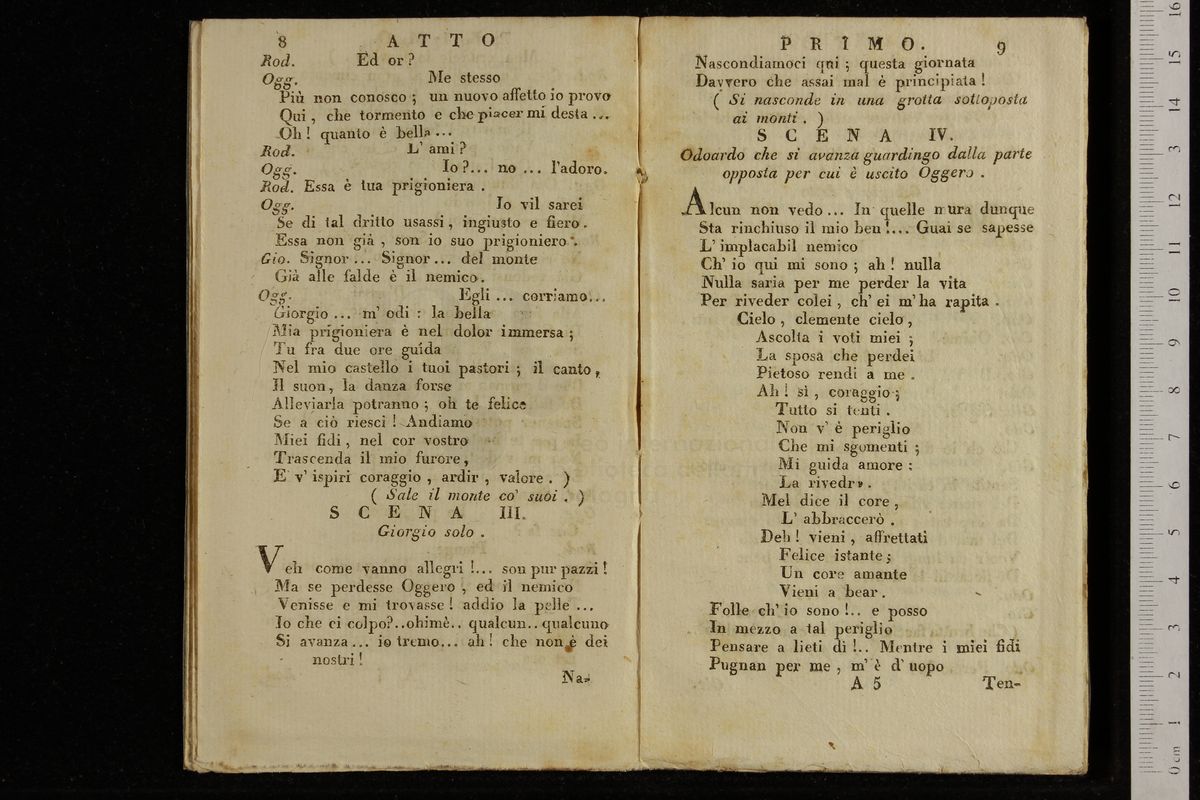 8 ATTO
Rod. Ed or?
Ogg. Me stesso
Più non conosco; un nuovo affetto io provo
Qui, che tormento e che piacer mi desta ...
Oh! quanto è bella ...
Rod. L' ami?
Ogg. Io?... no ... l'adoro.
Rod. Essa è tua prigioniera.
Ogg. Io vil sarei
Se di tal dritto usassi, ingiusto e fiero.
Essa non già, son io suo prigioniero.
Gio. Signor ... Signor ... del monte
Già alle falde è il nemico.
Ogg. Egli ... corriamo...
Giorgio ... m' odi: la bella
Mia prigioniera è nel dolor immersa;
Tu fra due ore guida
Nel mio castello i tuoi pastori; il canto,
Il suon, la danza forse
Alleviarla potranno; oh te felice
Se a ciò riesci! Andiamo
Miei fidi, nel cor vostro
Trascenda il mio furore,
E v' ispiri coraggio, ardir, valore. )
( Sale il monte co' suoi. )
SCENA III.
Giorgio solo.
Veh come vanno allegri!... son pur pazzi!
Ma se perdesse Oggero, ed il nemico
Venisse e mi trovasse! addio la pelle ...
Io che ci colpo?..ohimè.. qualcun..qualcuno
Si avanza ... io tremo... ah! che non è dei
nostri!
Na-
PRIMO. 9
Nascondiamoci qni; questa giornata
Davvero che assai mal è principiata!
( Si nasconde in una grotta sottoposta
ai monti. )
SCENA IV.
Odoardo che si avanza guardingo dalla parte
opposta per cui è uscito Oggero.
Alcun non vedo ... In quelle mura dunque
Sta rinchiuso il mio ben!... Guai se sapesse
L' implacabil nemico
Ch' io qui mi sono; ah! nulla
Nulla saria per me perder la vita
Per riveder colei, ch' ei m'ha rapita.
Cielo, clemente cielo,
Ascolta i voti miei;
La sposa che perdei
Pietoso rendi a me.
Ah! sì, coraggio;
Tutto si tenti.
Non v' è periglio
Che mi sgomenti;
Mi guida amore:
La rivedrò.
Mel dice il core,
L' abbraccerò.
Deh! vieni, affrettati
Felice istante;
Un core amante
Vieni a bear.
Folle ch' io sono!.. e posso
In mezzo a tal periglio
Pensare a lieti dì!.. Mentre i miei fidi
Pugnan per me, m' è d' uopo
A 5 Ten-